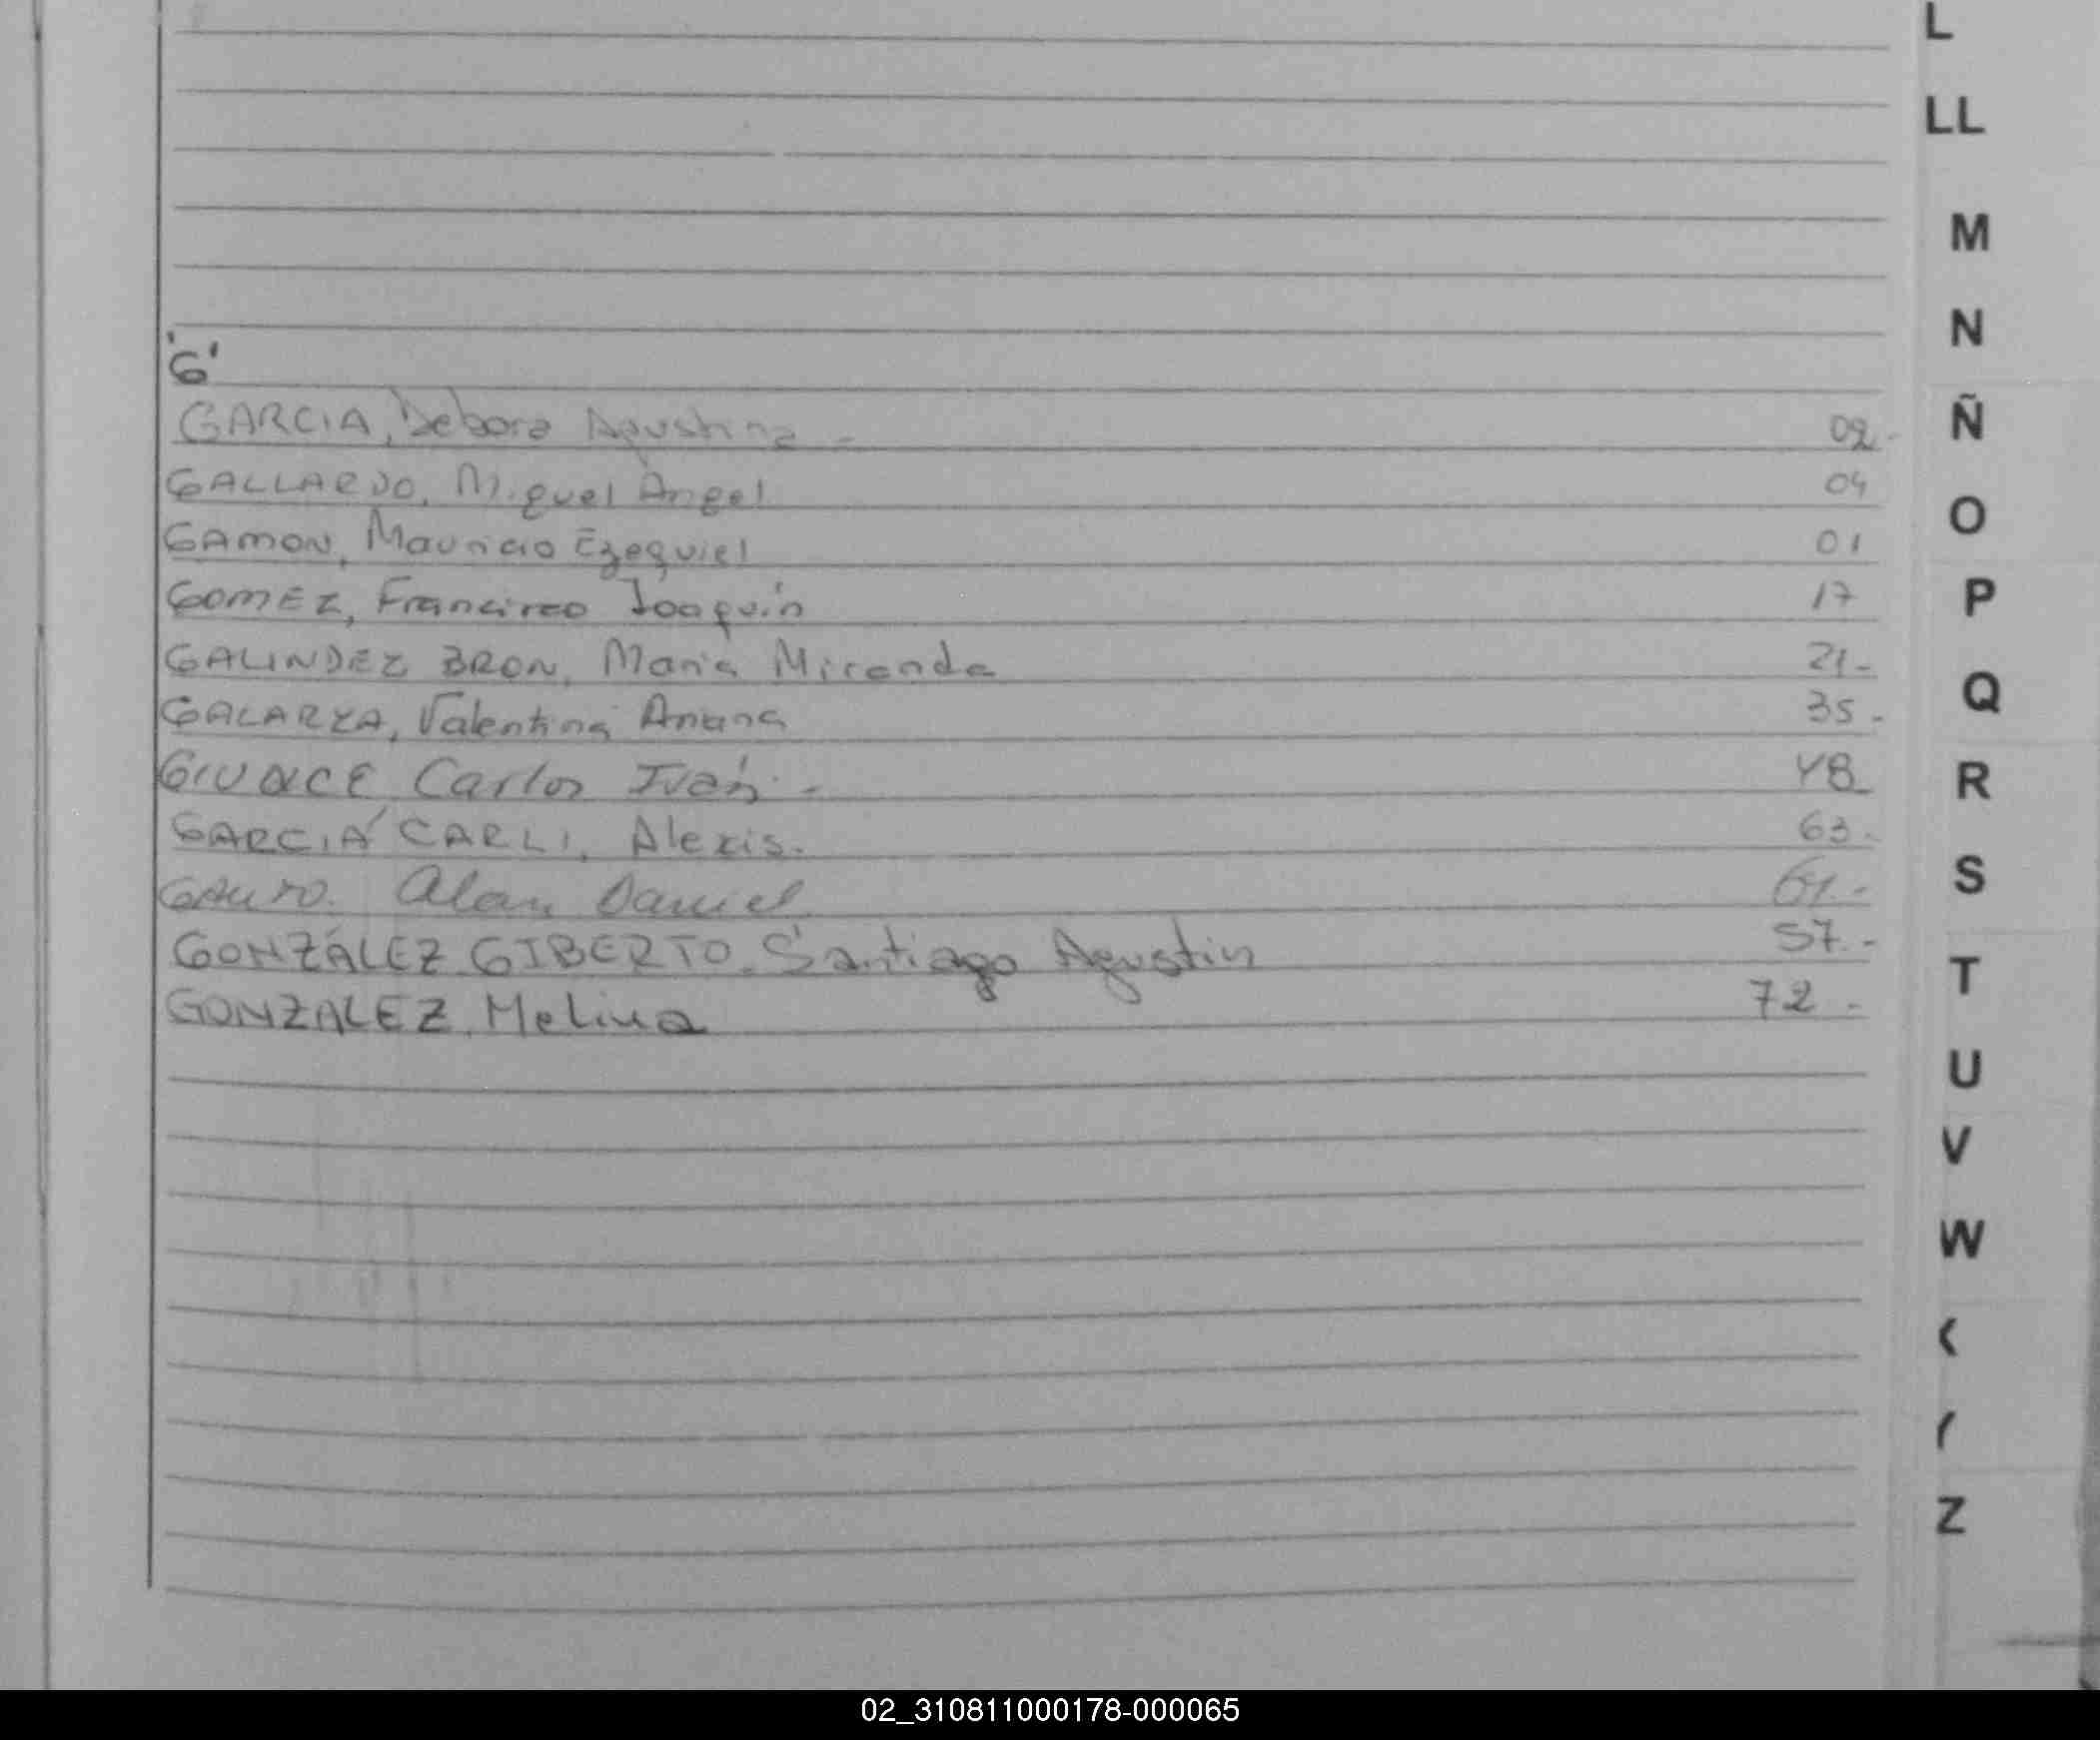 L
LL
M
N
'G'
Ñ
GARCIA, Debora Agustina - 02.-
GALLARDO, Miguel Angel 04
O
GAMON, Mauricio Ezequiel 01
GOMEZ, Francisco Joaquín 17
P
GALINDEZ BRON, Maria Miranda 21-
Q
GALARZA, Valentina Ariana 35.-
R
Carlos Iván.- 48
GARCIA CARLI, Alexis. 63.-
S
Alan Daniel.
GONZÁLEZ GIBERTO, Santiago Agustin 57.-
T
GONZALEZ, Melina 72.-
U
V
W
Z
02_310811000178-000065